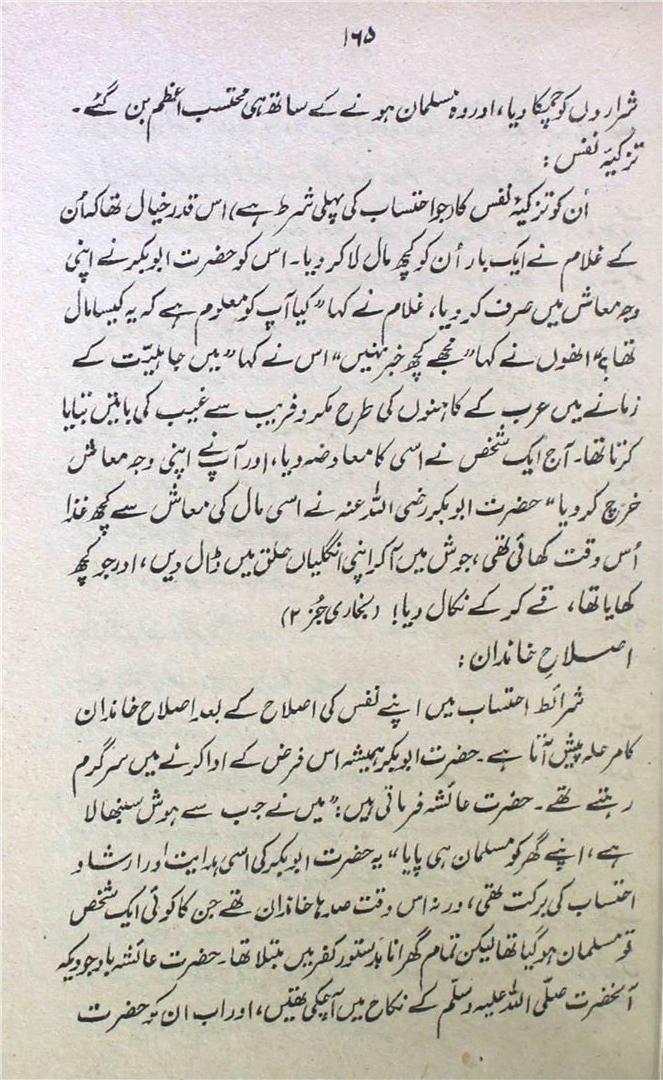 ۱۶۵
شراروں کو چمکا دیا، اور وہ مسلمان ہونے کے ساتھ ہی محتسب اعظم بن گئے۔
تزکیۂ نفس :
اُن کو تزکیۂ نفس کا (جو احتساب کی پہلی شرط ہے) اس قدر خیال تھا کہ اُن
کے غلام نے ایک بار اُن کو کچھ مال لا کر دیا۔ اس کو حضرت ابوبکر نے اپنی
وجہ معاش میں صرف کر دیا، غلام نے کہا "کیا آپ کو معلوم ہے کہ یہ کیسا مال
تھا؟" انھوں نے کہا "مجھے کچھ خبر نہیں" اس نے کہا "میں جاہلیّت کے
زمانے میں عرب کے کاہنوں کی طرح مکر و فریب سے غیب کی باتیں بتایا
کرتا تھا۔ آج ایک شخص نے اسی کا معاوضہ دیا، اور آپ نے اپنی وجہ معاش
خرچ کر دیا" حضرت ابوبکر رضی اللہ عنہ نے اسی مال کی معاش سے کچھ غذا
اُس وقت کھائی تھی، جوش میں آکر اپنی انگلیاں حلق میں ڈال دیں، اور جو کچھ
کھایا تھا، قے کر کے نکال دیا! (بخاری جُز ۲)
اصلاحِ خاندان :
شرائط احتساب میں اپنے نفس کی اصلاح کے بعد اصلاح خاندان
کا مرحلہ پیش آتا ہے۔ حضرت ابوبکر ہمیشہ اس فرض کے ادا کرنے میں سرگرم
رہتے تھے۔ حضرت عائشہ فرماتی ہیں: "میں نے جب سے ہوش سنبھالا
ہے، اپنے گھر کو مسلمان ہی پایا" یہ حضرت ابوبکر کی اسی ہدایت اور ارشاد و
احتساب کی برکت تھی، ورنہ اس وقت صدہا خاندان تھے جن کا کوئی ایک شخص
تو مسلمان ہو گیا تھا لیکن تمام گھرانا بدستور کفر میں مبتلا تھا۔ حضرت عائشہ باوجودیکہ
آنحضرت صلّی اللہ علیہ وسلّم کے نکاح میں آچکی تھیں، اور اب ان کو حضرت